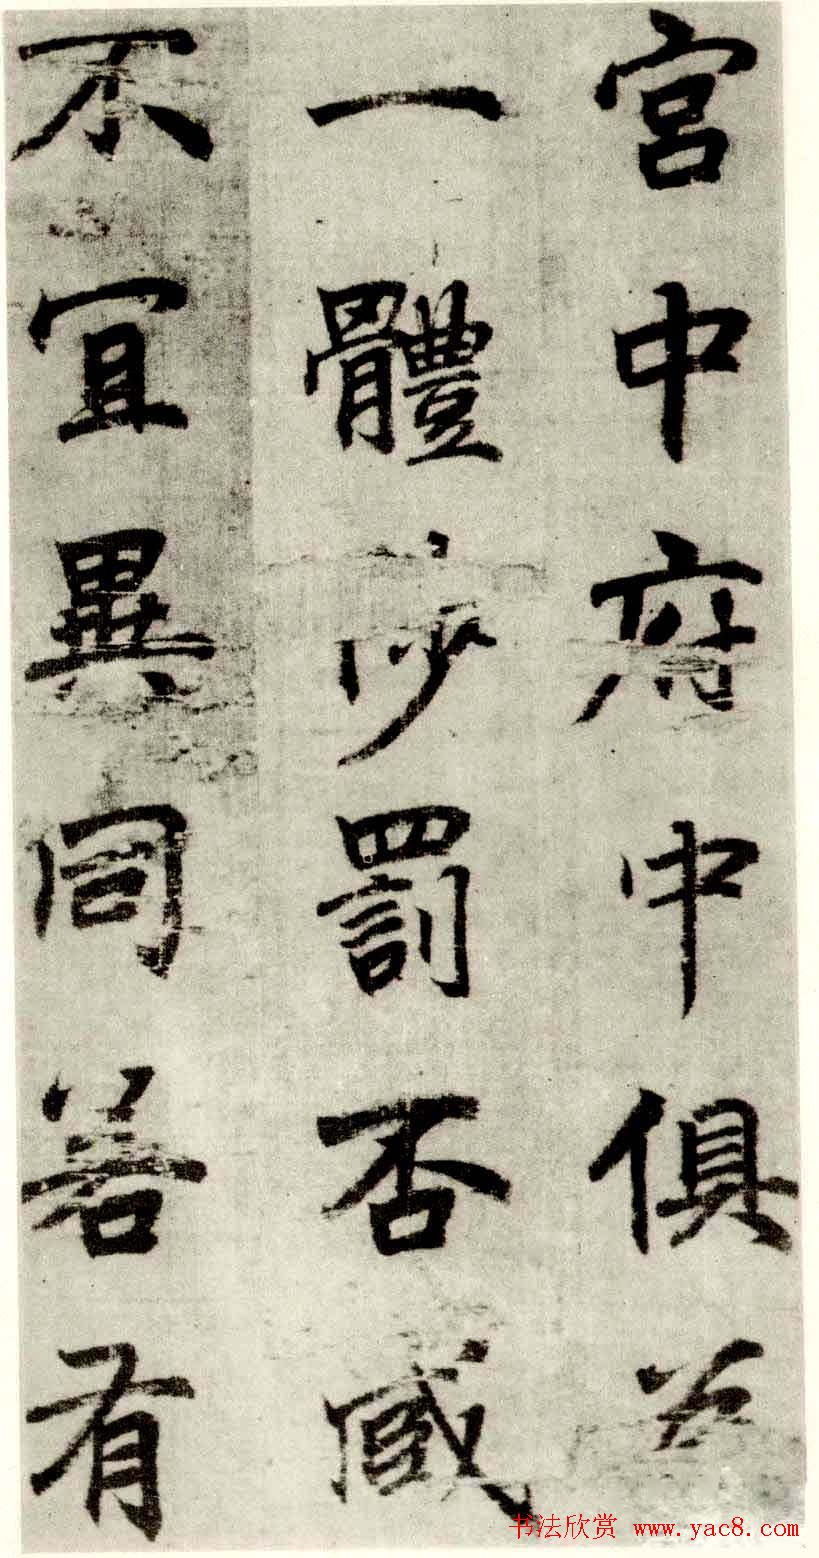 宮中府中俱為
一體陟罰否臧
不宜異同若有
书法欣赏 www.yac8.com